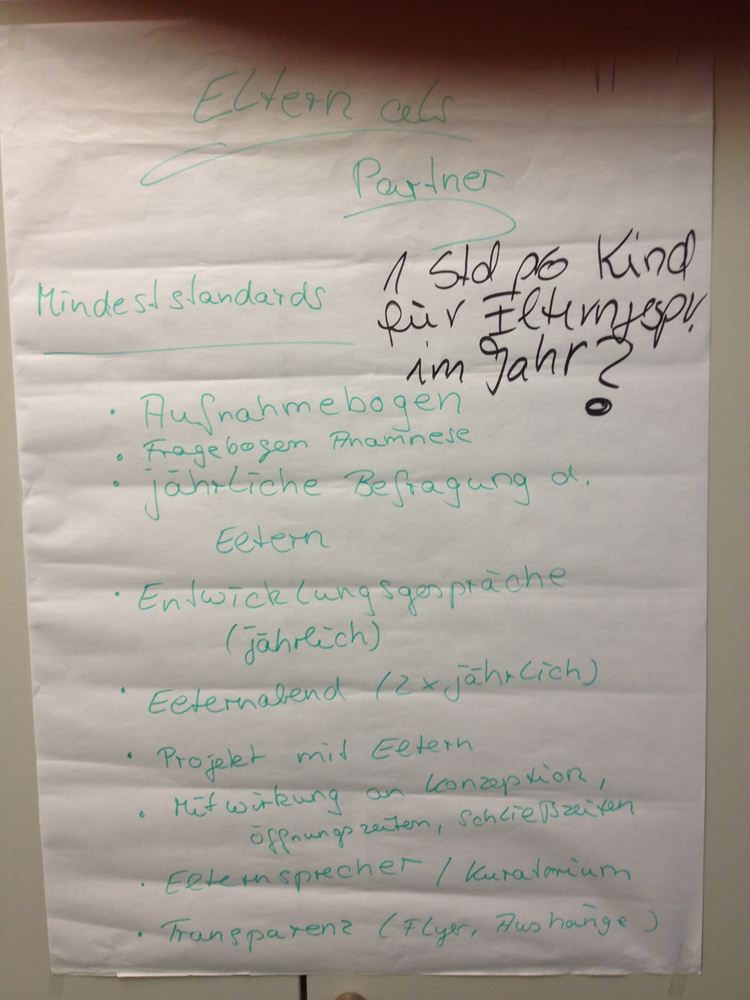 Eltern als
Partner
Mindeststandards
1 Std pro Kind
für Elterngespr.
im Jahr?
• Aufnahmebogen
• Fragebogen Anamnese
• jährliche Befragung d.
Eltern
• Entwicklungsgespräche
(jährlich)
• Elternabend (2x jährlich)
• Projekt mit Eltern
• Mitwirkung an Konzeption,
Öffnungszeiten, Schließzeiten
• Elternsprecher / Kuratorium
• Transparenz (Flyer, Aushänge)